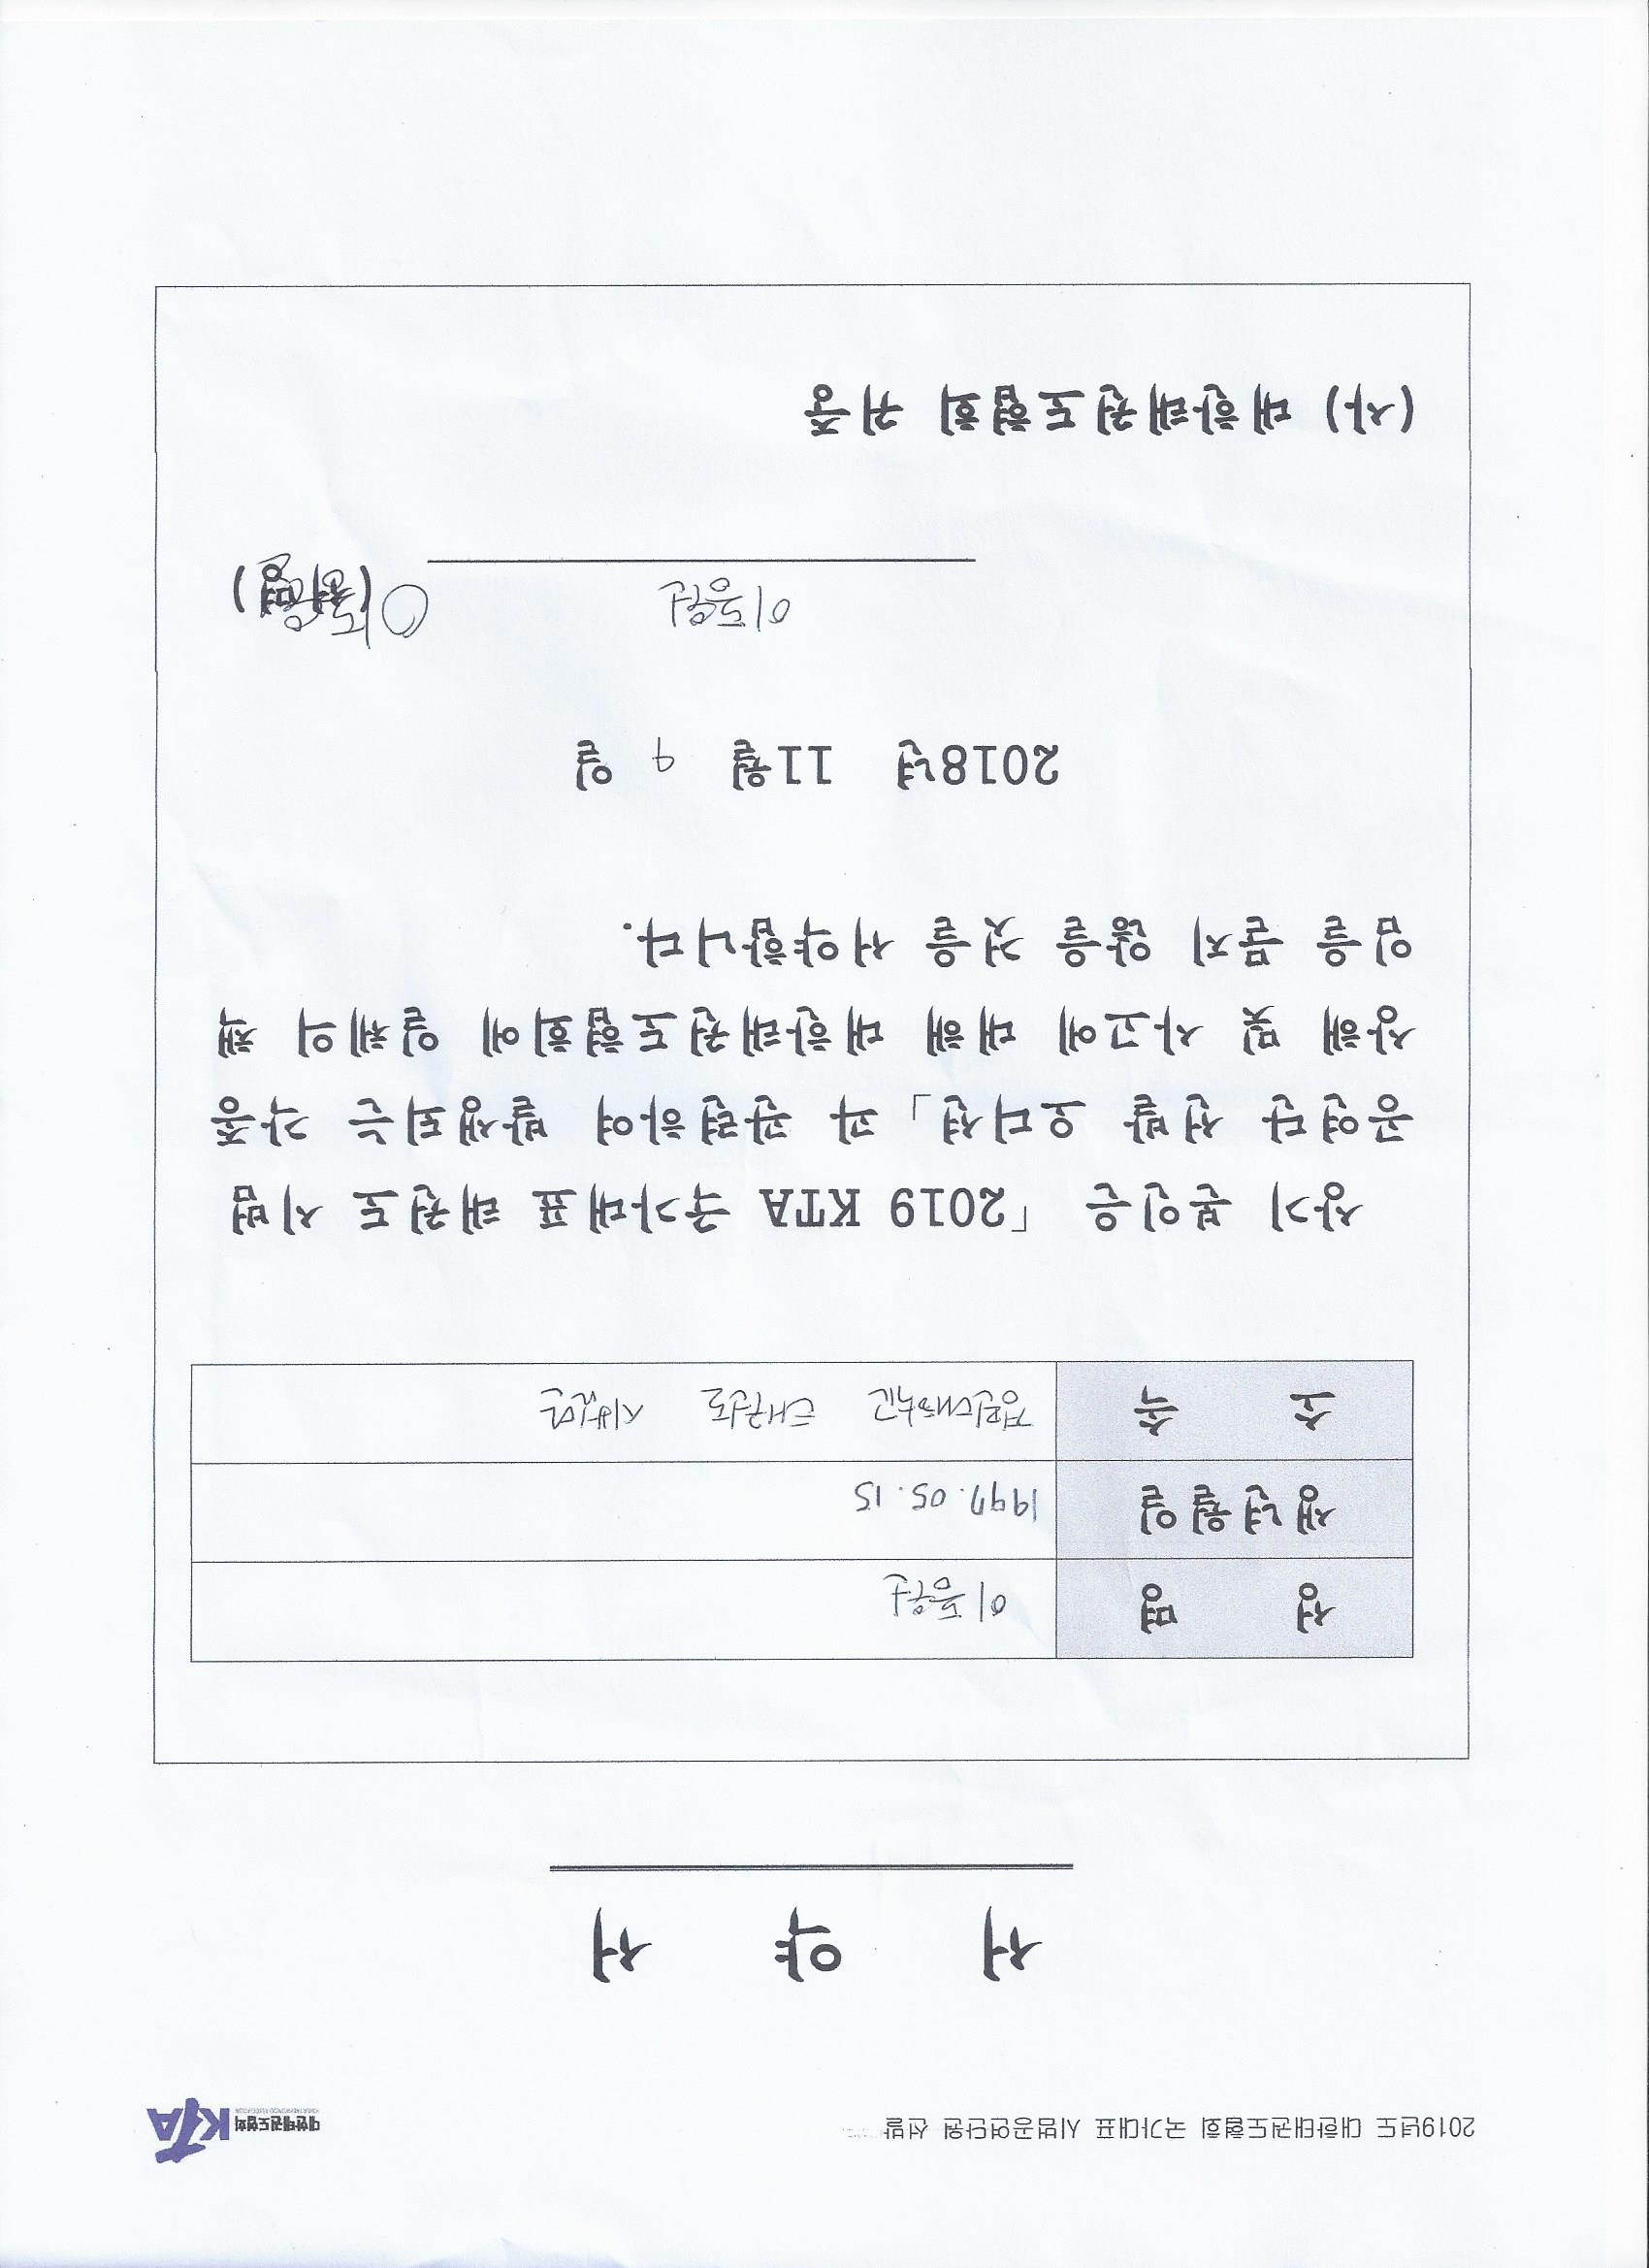 2019년도 대한태권도협회 국가대표 시범공연단원 선발
KTA 대한태권도협회
서 약 서
성 명 이동현
생년월일 1997.05.15
소 속 경민대학교 태권도 시범단
상기 본인은 「2019 KTA 국가대표 태권도 시범
공연단 선발 오디션」과 관련하여 발생되는 각종
상해 및 사고에 대해 대한태권도협회에 일체의 책
임을 묻지 않을 것을 서약합니다.
2018년 11월 9 일
이동현 (서명)
(사) 대한태권도협회 귀중